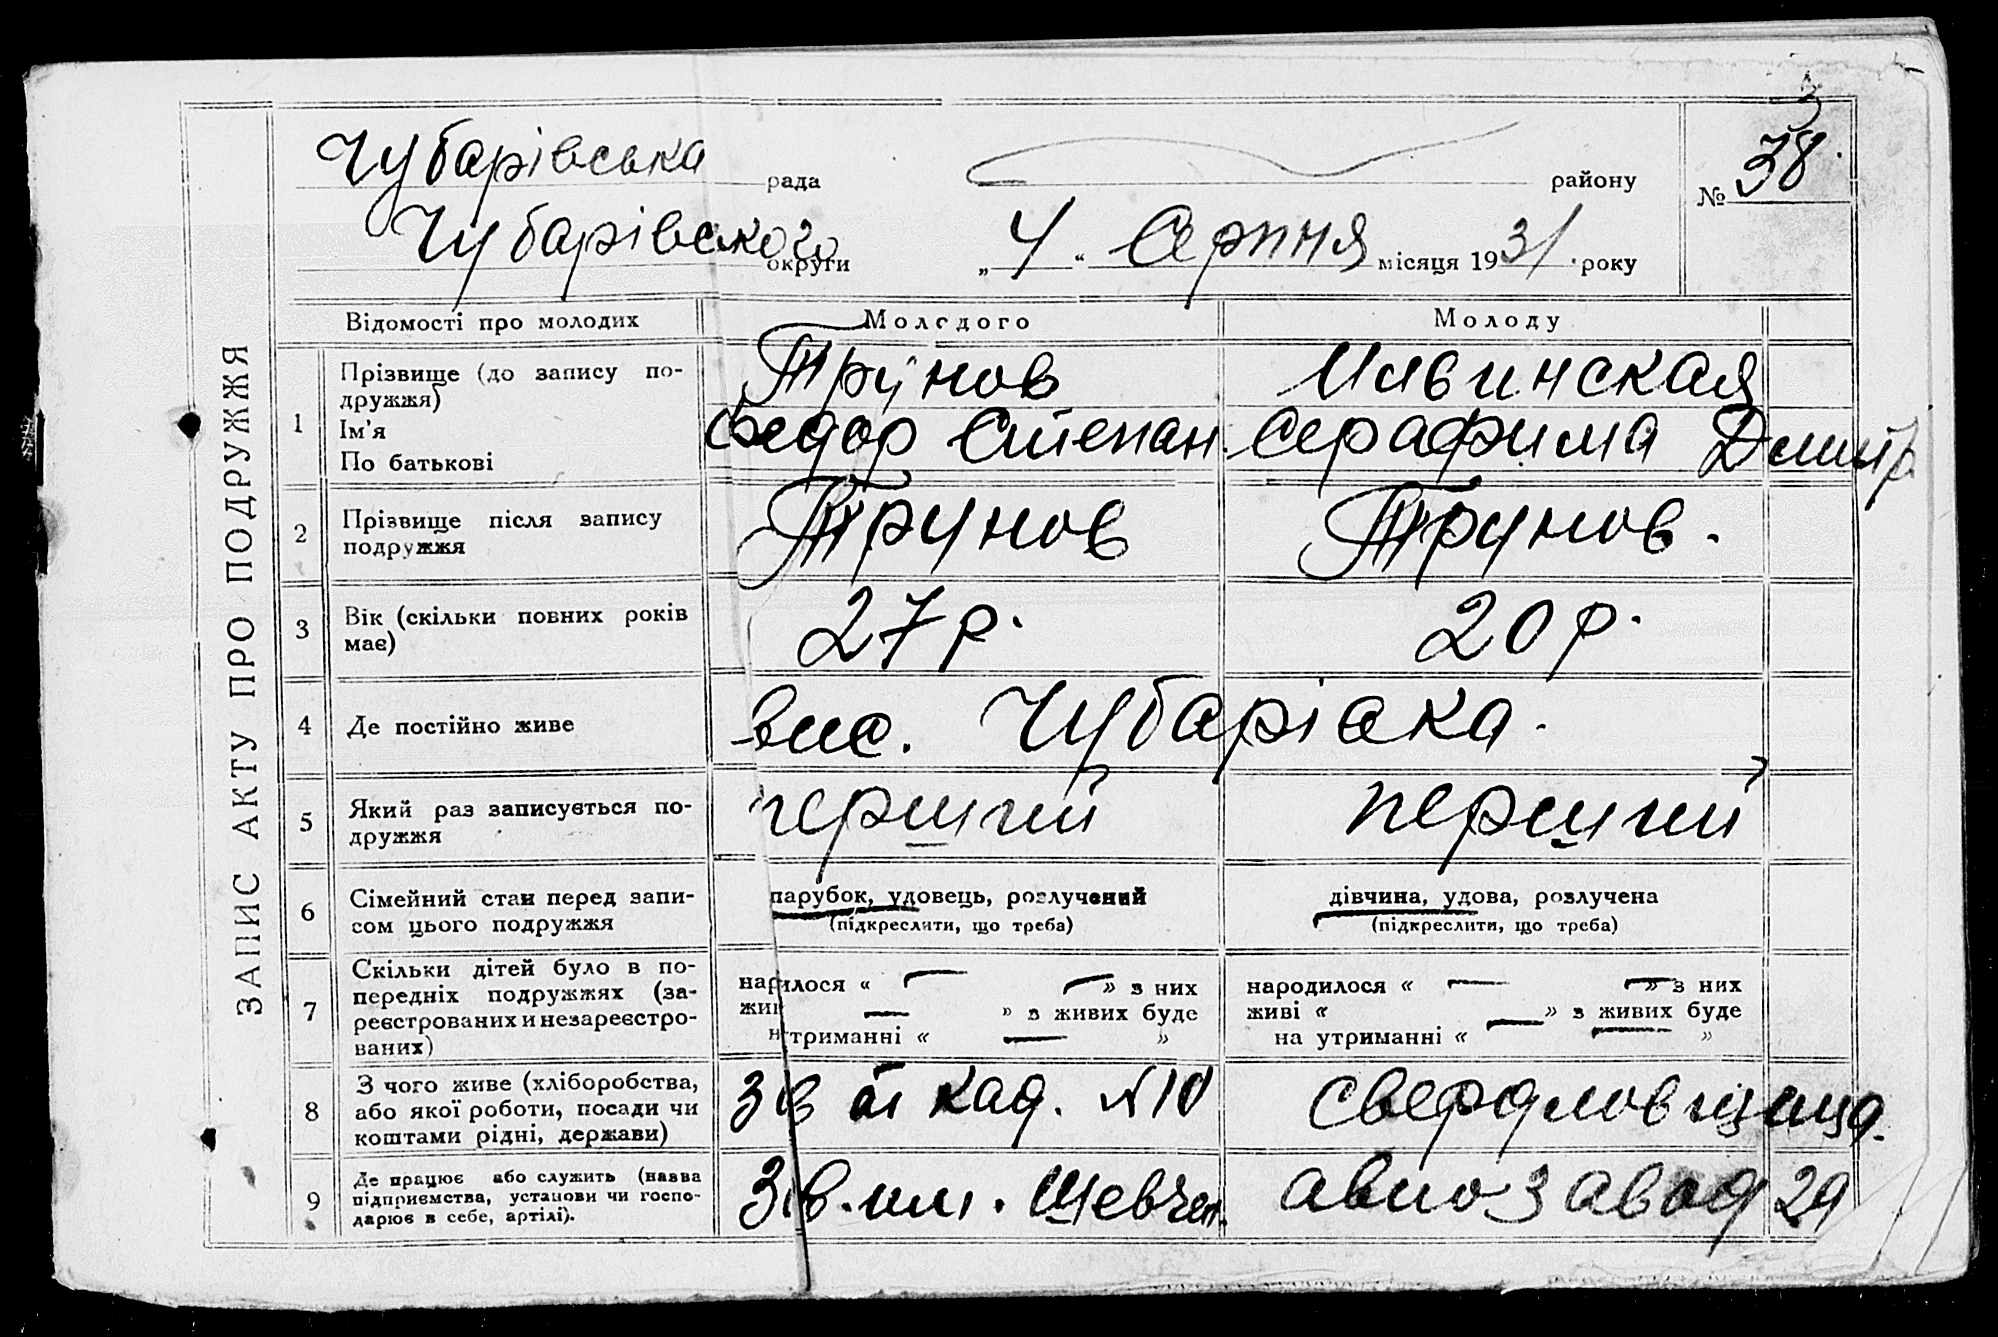 ЗАПИС АКТУ ПРО ПОДРУЖЖЯ
Чубарівська рада району № 38
Чубарівского округи „4“ Серпня місяця 1931 року
Відомості про молодих Молодого Молоду
1 Прізвище (до запису по-
дружжя) Трунов Ильинская
Ім'я
По батькові Федор Степан. Серафима Дмитр.
2 Прізвище після запису
подружжя Трунов Трунов.
3 Вік (скільки повних років
має) 27 р. 20 р.
4 Де постійно живе вис. Чубарівка.
5 Який раз записується по-
дружжя перший перший
6 Сімейний стан перед запи-
сом цього подружжя
парубок, удовець, розлучений
(підкреслити, що треба)
дівчина, удова, розлучена
(підкреслити, що треба)
7 Скільки дітей було в по-
передніх подружжях (за-
реєстрованих и незареєстро-
ваних)
нар илося « — — » з них
жив — » з живих буде
н утриманні « — »
народилося « — — » з них
живі « — » з живих буде
на утриманні « — »
8 З чого живе (хліборобства,
або якої роботи, посади чи
коштами рідні, держави)
Зав кад. №10
9 Де працює або служить (назва
підприємства, установи чи госпо-
дарює в себе, артілі).
Зав. им. Шевчен. авиозавод 29